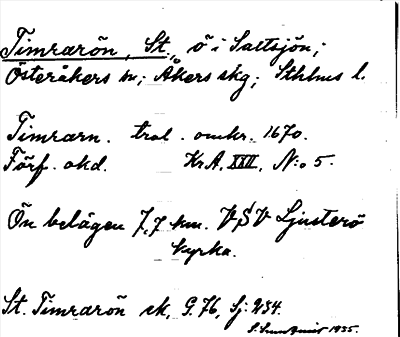 Timrarön, St., ö i Saltsjön;
Österåkers sn; Åkers skg; Sthlms l.
Timrarn. tral. omkr. 1670.
Förf. okd. Kr.A. XXII, N:o 5.
Ön belägen 7,7 km. VSV Ljusterö
kyrka.
St. Timrarön sk, G. 76, Sj: 234.
1935.